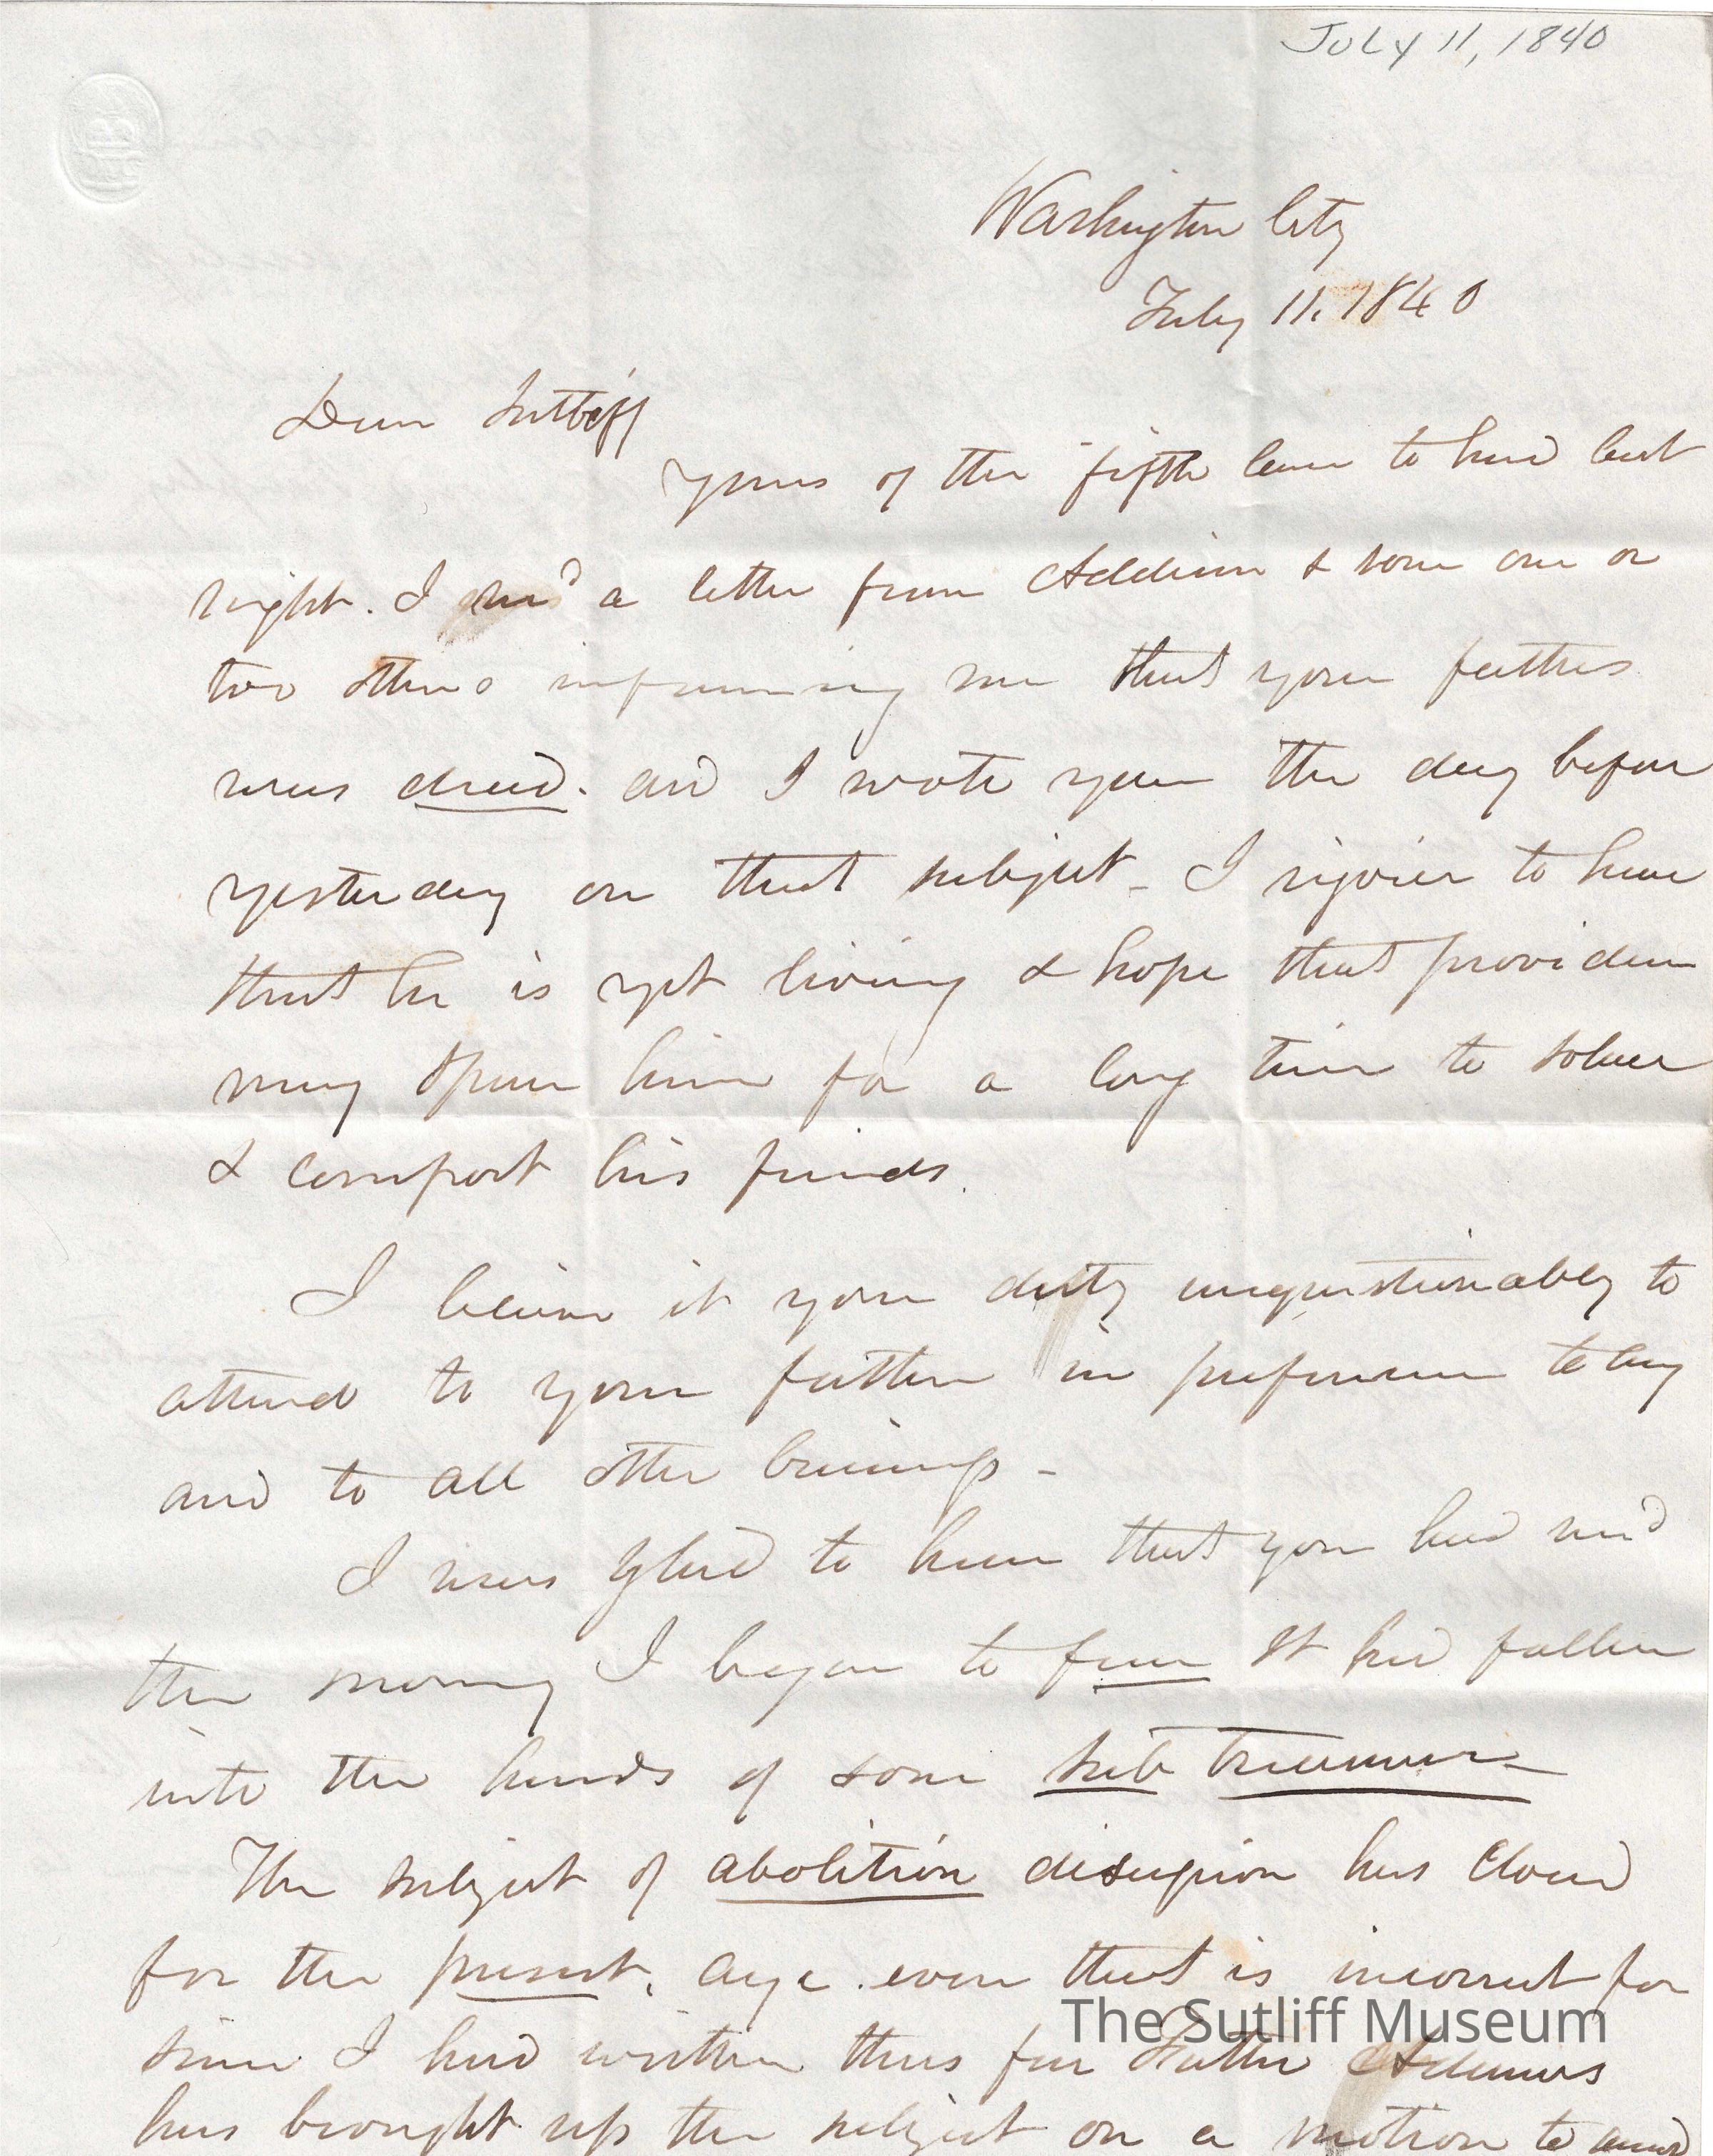 JULY 11, 1840
Washington City
July 11. 1840
Dear Sutliff
Yours of the fifth came to hand last
night. I rec'd a letter from Addison & some one or
two others informing me that your father
was dead. and I wrote you the day before
yesterday on that subject - I rejoice to hear
that he is yet living & hope that providence
may spare him for a long time to solace
& comfort his friends.
I believe it your duty unquestionably to
attend to your father in preference to any
and to all other business -
I was glad to hear that you had rec'd
the money I began to fear it had fallen
into the hands of some sub treasurer
The subject of abolition discussion has closed
for the present. aye. even that is incorrect for
since I had written thus far Father Adams
has brought up the subject on a motion to amend
The Sutliff Museum